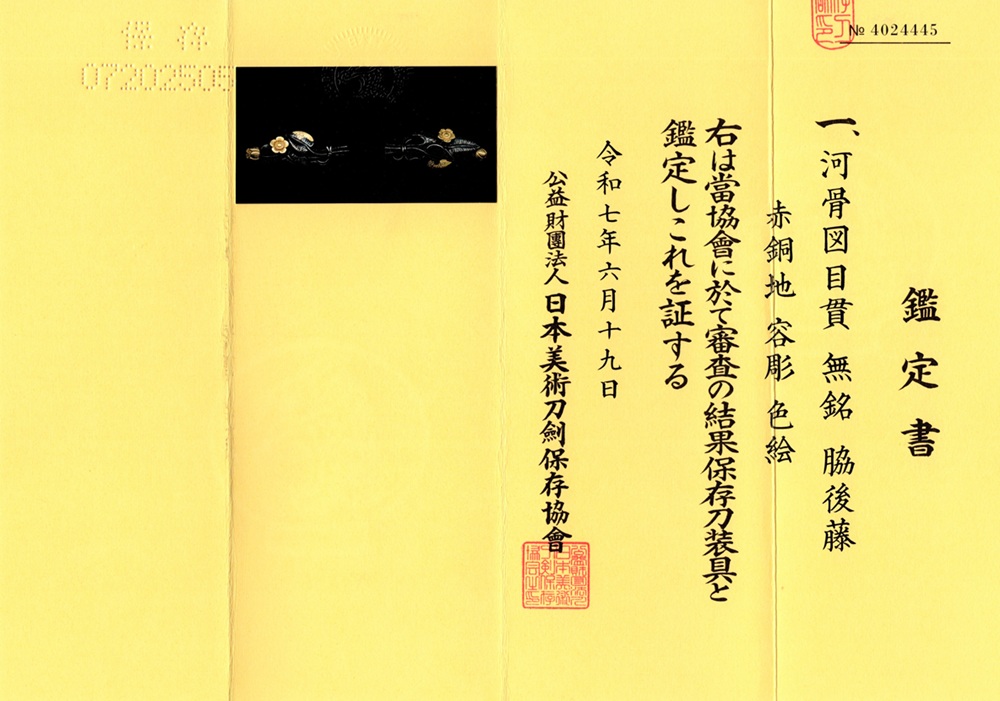 № 4024445
鑑定書
一、河骨図目貫 無銘 脇後藤
赤銅地 容彫 色絵
右は當協會に於て審査の結果保存刀装具と
鑑定しこれを証する
令和七年六月十九日
公益財團法人 日本美術刀劍保存協會
保存
07202505